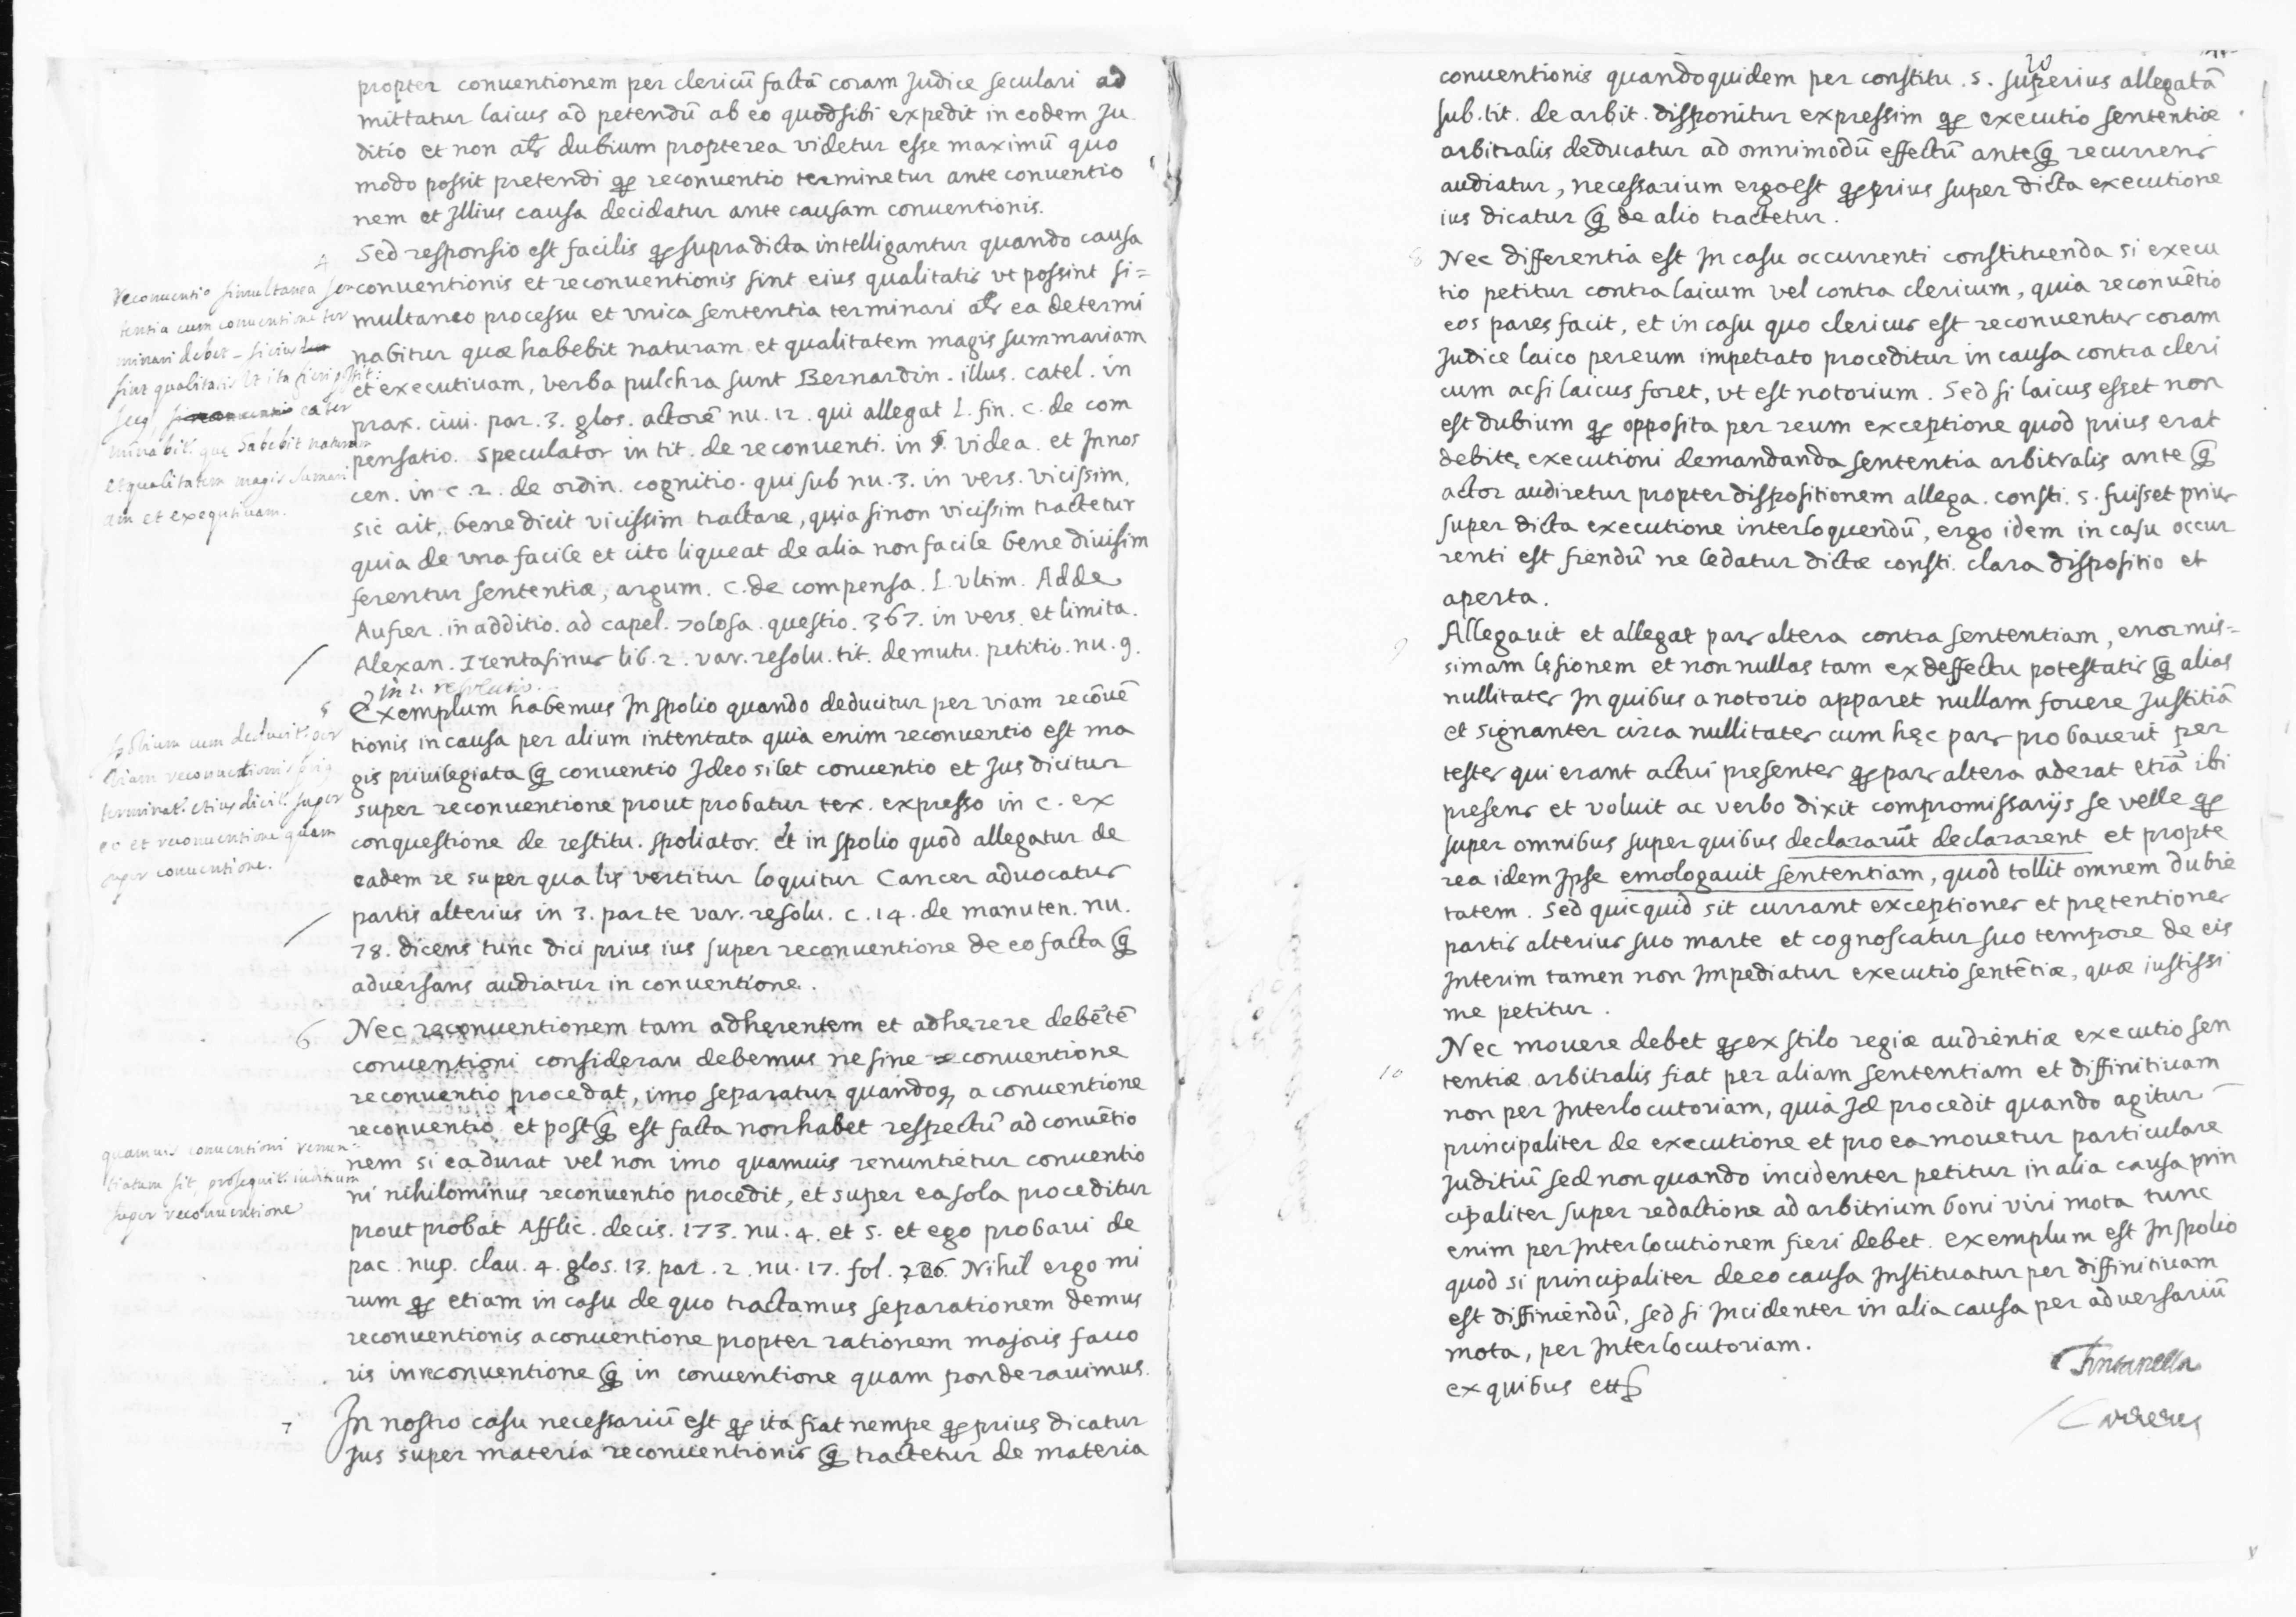 propter conuentionem per clericū factā coram Judice seculari ad
mittatur laicus ad petendū ab eo quod sibi expedit in eodem Ju
ditio et non alr dubium propterea videtur esse maximū quo
modo possit pretendi qȝ reconuentio terminetur ante conuentio
nem et Jllius causa decidatur ante causam conuentionis.
4
Sed responsio est facilis qȝ supradicta intelligantur quando causa
conuentionis et reconuentionis sint eius qualitatis vt possint si=
multaneo processu et vnica sententia terminari alr ea determi
nabitur quæ habebit naturam et qualitatem magis summariam
et executiuam, verba pulchra sunt Bernardin. illus. catel. in
prax. ciui. par. 3. glos. actorē nu. 12. qui allegat l. fin. c. de com
pensatio. Speculator in tit. de reconuenti. in §. videa. et Jnnos
cen. in c. 2. de ordin. cognitio. qui sub nu. 3. in vers. vicissim,
sic ait, bene dicit vicissim tractare, quia si non vicissim tractetur
quia de vna facile et cito liqueat de alia non facile bene diuisim
ferentur sententiæ, argum. c. de compensa. l. vltim. Adde
Aufrer. in additio. ad capel. Tolosa. questio. 367. in vers. et limita.
Alexan. Trentasinus lib. 2. var. resolu. tit. de mutu. petitio. nu. 9.
in 2. resolutio.
reconuentio simultanea sen
tentia cum conuentione ter
minari debet - si eius
sint qualitatis vt ita fieri possit:
ea ter
minabit. que habebit naturam
et qualitatem magis sumari
am et exequtiuam.
5
Exemplum habemus Jn spolio quando deducitur per viam recōuē
tionis in causa per alium intentata quia enim reconuentio est ma
gis priuilegiata q̃ conuentio Jdeo silet conuentio et Jus dicitur
super reconuentione prout probatur tex. expresso in c. ex
conquestione de restitu. spoliator. Et in spolio quod allegatur de
eadem re super qua lis vertitur loquitur Cancer aduocatus
partis alterius in 3. parte var. resolu. c. 14. de manuten. nu.
78. dicens tunc dici prius ius super reconuentione de eo facta q̃
aduersans audiatur in conuentione.
spolium cum deducit. per
viam reconuentionis prius
terminat. et ius dicit. super
eo et reconuentione quam
super conuentione.
6
Nec reconuentionem tam adhęrentem et adhęrere debētē
conuentioni considerari debemus ne sine conuentione
reconuentio procedat, imo separatur quandoq, a conuentione
reconuentio, et post q̃ est facta non habet respectū ad conuētio
nem si ea durat vel non imo quamuis renuntietur conuentio
ni nihilominus reconuentio procedit, et super ea sola proceditur
prout probat Afflic. decis. 173. nu. 4. et 5. et ego probaui de
pac. nup. clau. 4. glos. 13. par. 2. nu. 17. fol. Nihil ergo mi
rum qȝ etiam in casu de quo tractamus separationem demus
reconuentionis a conuentione propter rationem majoris fauo
ris in reconuentione q̃ in conuentione quam ponderauimus.
quamuis conuentioni renun
tiatum sit, prosequit. iuditium
super reconuentione
7
Jn nostro casu necessariū est qȝ ita fiat nempe qȝ prius dicatur
Jus super materia reconuentionis q̃ tractetur de materia
20
conuentionis quandoquidem per constitu. 5. superius allegatā
sub. tit. de arbit. disponitur expressim qȝ executio sententiæ
arbitralis deducatur ad omnimodū effectū ante q̃ recurrens
audiatur, necessarium ergo est qȝ prius super dicta executione
ius dicatur q̃ de alio tractetur.
8
Nec differentia est Jn casu occurrenti constituenda si execu
tio petitur contra laicum vel contra clericum, quia reconuētio
eos pares facit, et in casu quo clericus est reconuentus coram
Judice laico per eum impetrato proceditur in causa contra cleri
cum ac si laicus foret, vt est notorium. Sed si laicus esset non
est dubium qȝ opposita per reum exceptione quod prius erat
debitę executioni demandanda sententia arbitralis ante q̃
actor audiretur propter dispositionem allega. consti. 5. fuisset prius
super dicta executione interloquendū, ergo idem in casu occur
renti est fiendū ne ledatur dictæ consti. clara dispositio et
aperta.
9
Allegauit et allegat pars altera contra sententiam, enormis=
simam lęsionem et non nullas tam ex deffectu potestatis q̃ alias
nullitates Jn quibus a notorio apparet nullam fouere Justitiā
et signanter circa nullitates cum hęc pars probauerit per
testes qui erant actui presentes qȝ pars altera aderat etiā ibi
presens et voluit ac verbo dixit compromissarijs se velle qȝ
super omnibus super quibus declararūt declararent et propte
rea idem Jpse emologauit sententiam, quod tollit omnem dubie
tatem. Sed quicquid sit currant exceptiones et prętentiones
partis alterius suo marte et cognoscatur suo tempore de eis
Jnterim tamen non Jmpediatur executio sentētiæ, quæ iustissi
me petitur.
10
Nec mouere debet qȝ ex stilo regiæ audientiæ executio sen
tentiæ arbitralis fiat per aliam sententiam et diffinitiuam
non per Jnterlocutoriam, quia Jd procedit quando agitur
principaliter de executione et pro ea mouetur particulare
Juditiū sed non quando incidenter petitur in alia causa prin
cipaliter super redactione ad arbitrium boni viri mota tunc
enim per Jnterlocutionem fieri debet. exemplum est Jn spolio
quod si principaliter de eo causa Jnstituatur per diffinitiuam
est diffiniendū, sed si Jncidenter in alia causa per aduersariū
mota, per Jnterlocutoriam.
ex quibus ettȝ
Fontanella
Carreres